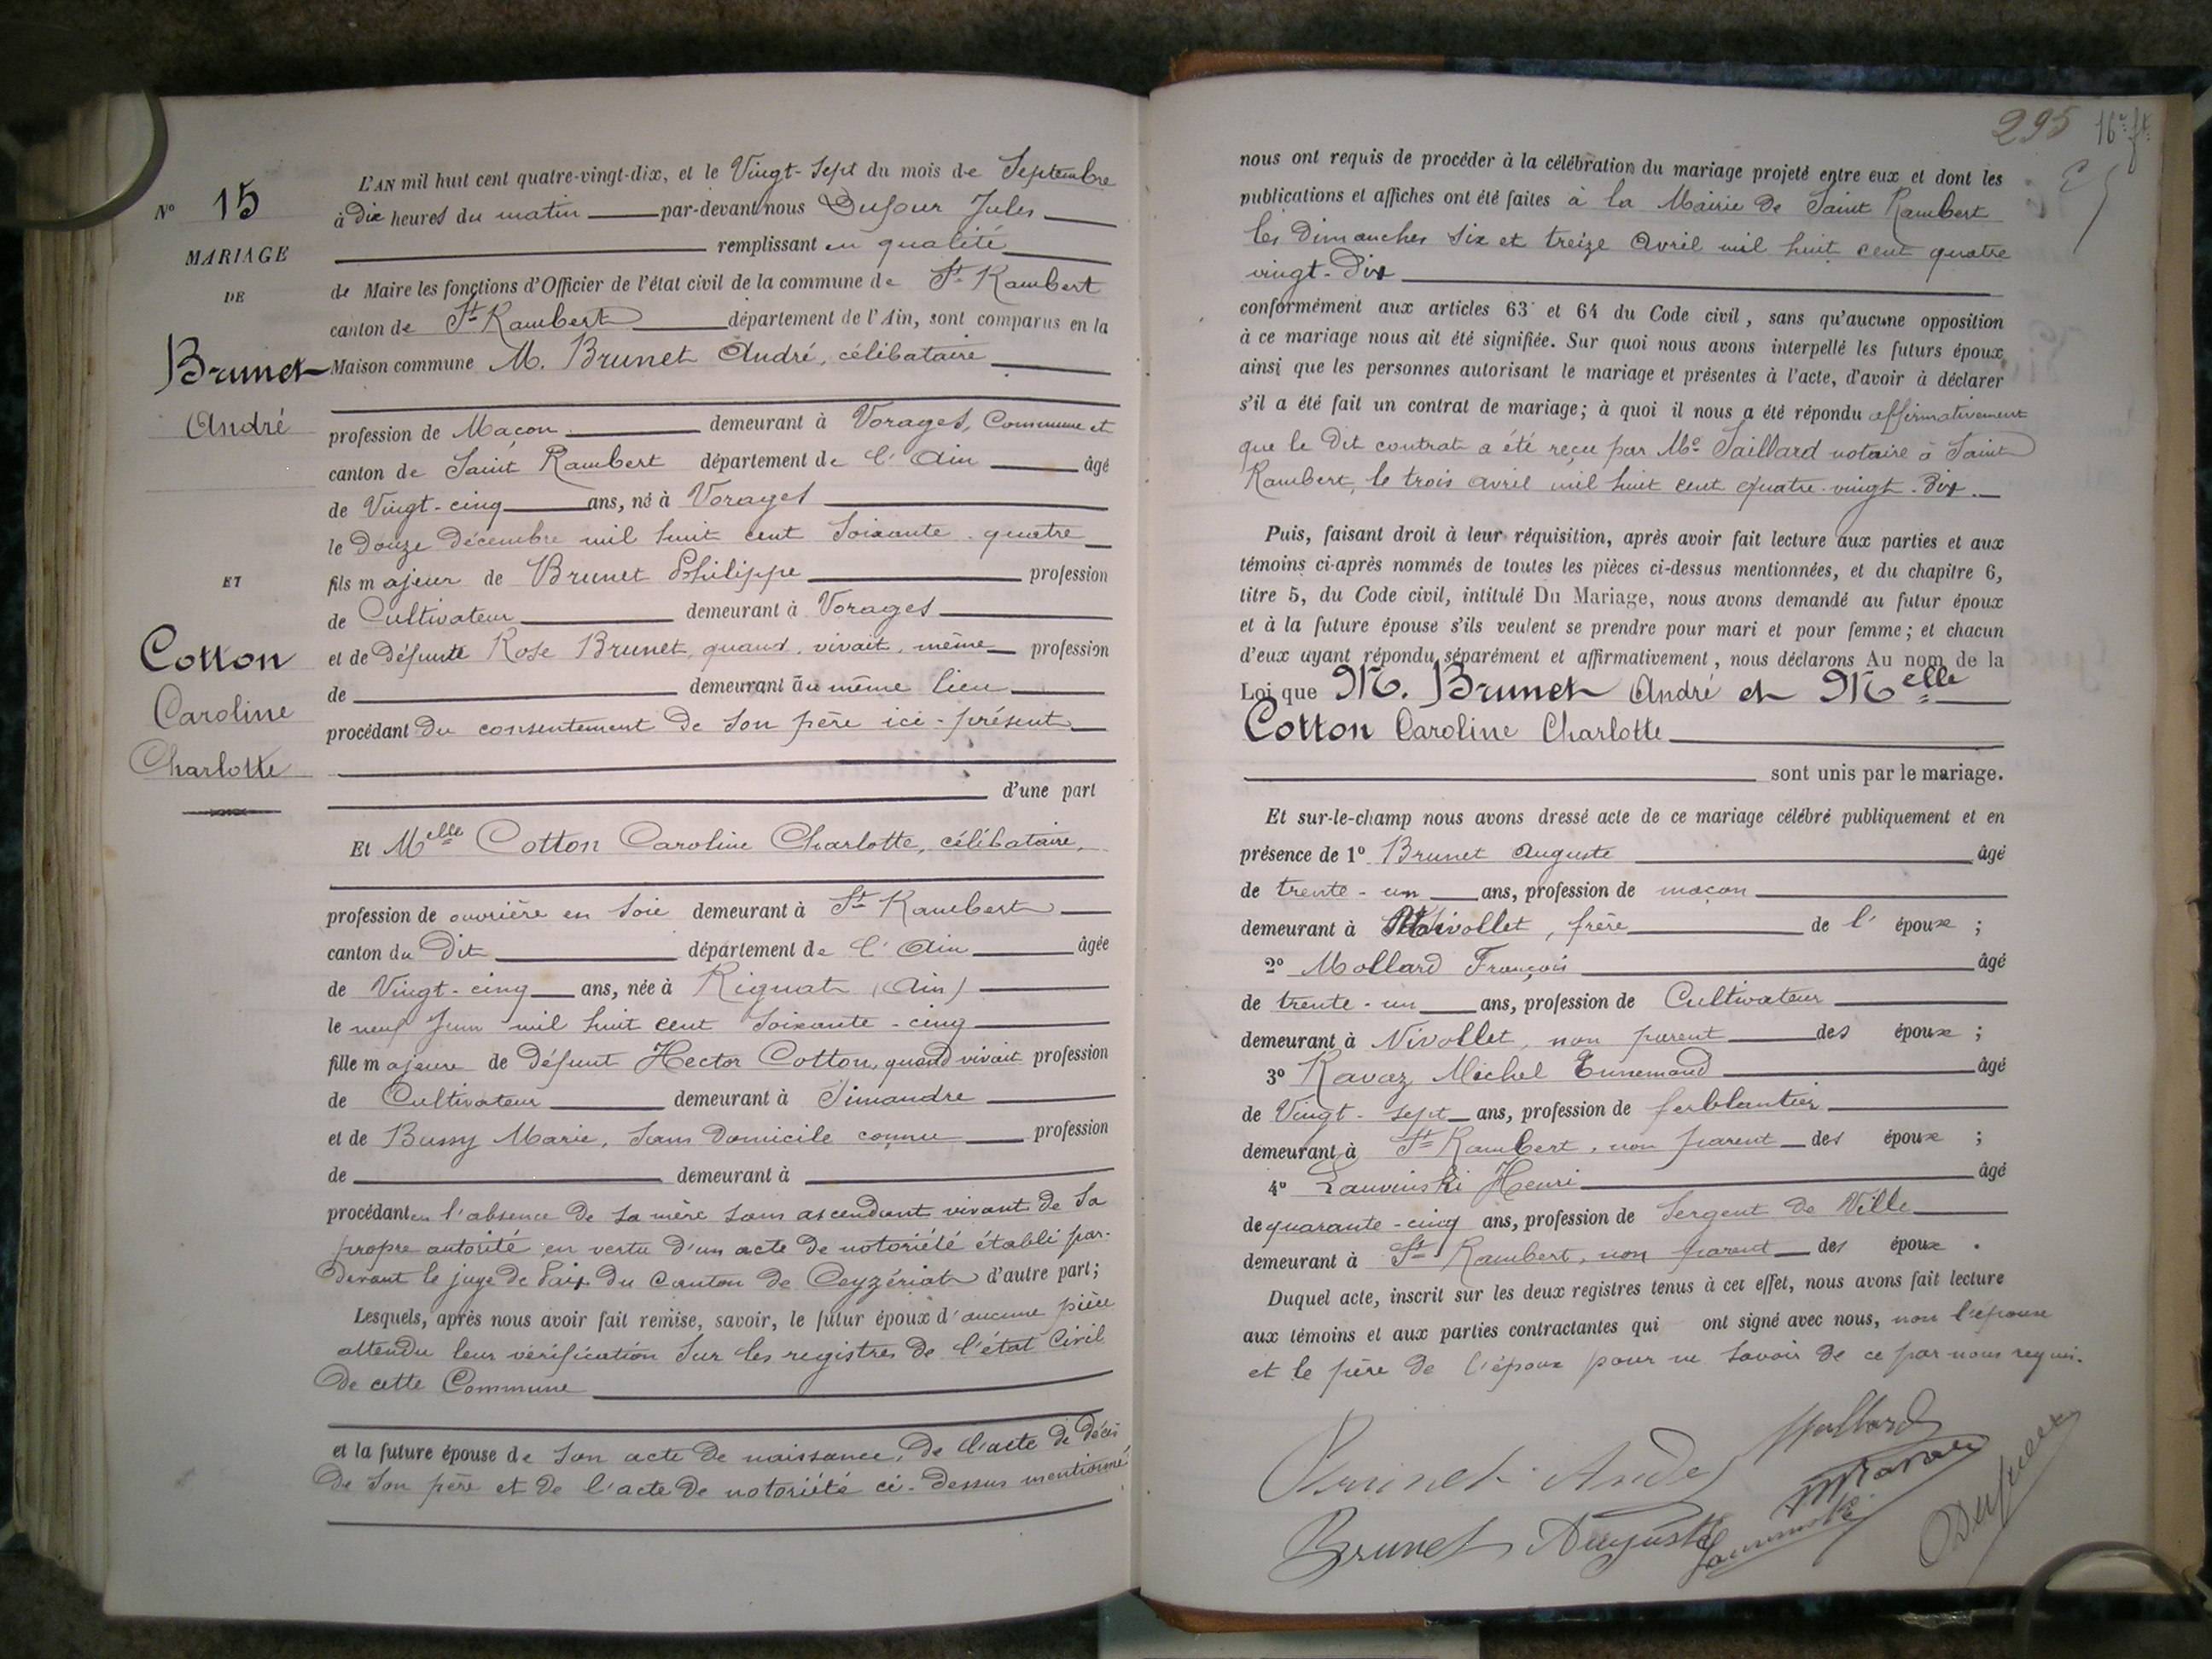 N° 15
MARIAGE
DE
Brunet
André
ET
Cotton
Caroline
Charlotte
L'AN mil huit cent quatre-vingt-dix, et le Vingt-Sept du mois de Septembre
à Dix heures du matin par-devant nous Dufour Jules
remplissant en qualité
de Maire les fonctions d'Officier de l'état civil de la commune de St Rambert
canton de St Rambert département de l'Ain, sont comparus en la
Maison commune M. Brunet André, célibataire
profession de Maçon demeurant à Vorages, Commune et
canton de Saint Rambert département de l'Ain âgé
de Vingt-cinq ans, né à Vorages
le Douze Décembre mil huit cent Soixante-quatre
fils majeur de Brunet Philippe profession
de Cultivateur demeurant à Vorages
et de Défunte Rose Brunet, quand vivait, même profession
de demeurant au même lieu
procédant Du consentement De Son père ici-présent
d'une part
Et Melle Cotton Caroline Charlotte, célibataire,
profession de ouvrière en Soie demeurant à St Rambert
canton du Dit département de l'Ain âgée
de Vingt-cinq ans, née à Rignat (Ain)
le neuf Juin mil huit cent Soixante-cinq
fille majeure de Défunt Hector Cotton, quand vivait profession
de Cultivateur demeurant à Simandre
et de Bussy Marie, Sans Domicile connu profession
de demeurant à
procédant en l'absence De Sa mère Sans ascendant vivant De Sa
propre autorité en vertu D'un acte De notoriété établi par-
Devant le juge De Paix Du Canton De Ceyzériat d'autre part;
Lesquels, après nous avoir fait remise, savoir, le futur époux d'aucune pièce
attendu leur vérification Sur les registres De l'état Civil
De cette Commune
et la future épouse de Son acte De naissance, De l'acte De Décès
De Son père et De l'acte De notoriété ci-Dessus mentionné
295 16e ft
nous ont requis de procéder à la célébration du mariage projeté entre eux et dont les
publications et affiches ont été faites à la Mairie De Saint Rambert
les Dimanches Six et treize Avril mil huit cent quatre
vingt-Dix
conformément aux articles 63 et 64 du Code civil, sans qu'aucune opposition
à ce mariage nous ait été signifiée. Sur quoi nous avons interpellé les futurs époux
ainsi que les personnes autorisant le mariage et présentes à l'acte, d'avoir à déclarer
s'il a été fait un contrat de mariage; à quoi il nous a été répondu affirmativement
que le Dit contrat a été reçu par Me Saillard notaire à Saint
Rambert, le trois Avril mil huit cent quatre-vingt-Dix.
Puis, faisant droit à leur réquisition, après avoir fait lecture aux parties et aux
témoins ci-après nommés de toutes les pièces ci-dessus mentionnées, et du chapitre 6,
titre 5, du Code civil, intitulé Du Mariage, nous avons demandé au futur époux
et à la future épouse s'ils veulent se prendre pour mari et pour femme; et chacun
d'eux ayant répondu séparément et affirmativement, nous déclarons Au nom de la
Loi que M. Brunet André et Melle
Cotton Caroline Charlotte
sont unis par le mariage.
Et sur-le-champ nous avons dressé acte de ce mariage célébré publiquement et en
présence de 1° Brunet Auguste âgé
de trente-un ans, profession de maçon
demeurant à Nivollet, frère de l'époux;
2° Mollard François âgé
de trente-un ans, profession de Cultivateur
demeurant à Nivollet, non parent des époux;
3° Ravaz Michel Ennemond âgé
de Vingt-Sept ans, profession de ferblantier
demeurant à St Rambert, non parent des époux;
4° Henri âgé
de quarante-cinq ans, profession de Sergent De Ville
demeurant à St Rambert, non parent des époux.
Duquel acte, inscrit sur les deux registres tenus à cet effet, nous avons fait lecture
aux témoins et aux parties contractantes qui ont signé avec nous, non l'épouse
et le père De l'époux pour ne Savoir De ce par nous requis.
Mollard
Brunet André
Ravaz
Brunet Auguste
Dufour